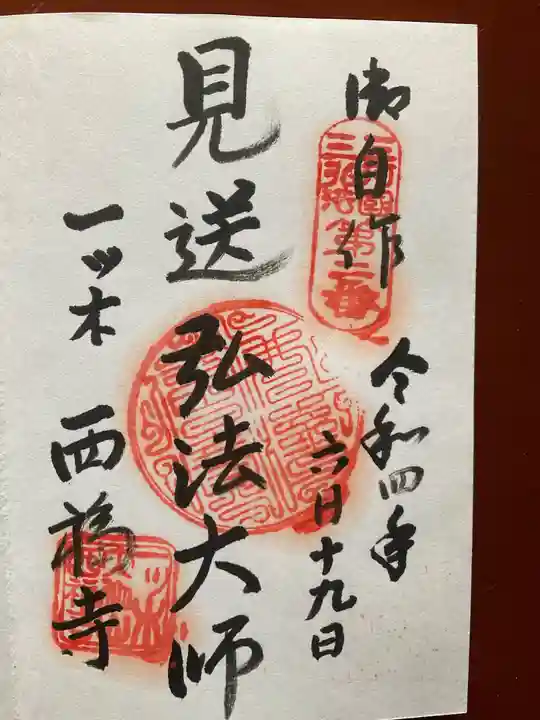 御自作
第二番
令和四年
六月十九日
見送弘法大師
一ッ木 西福寺